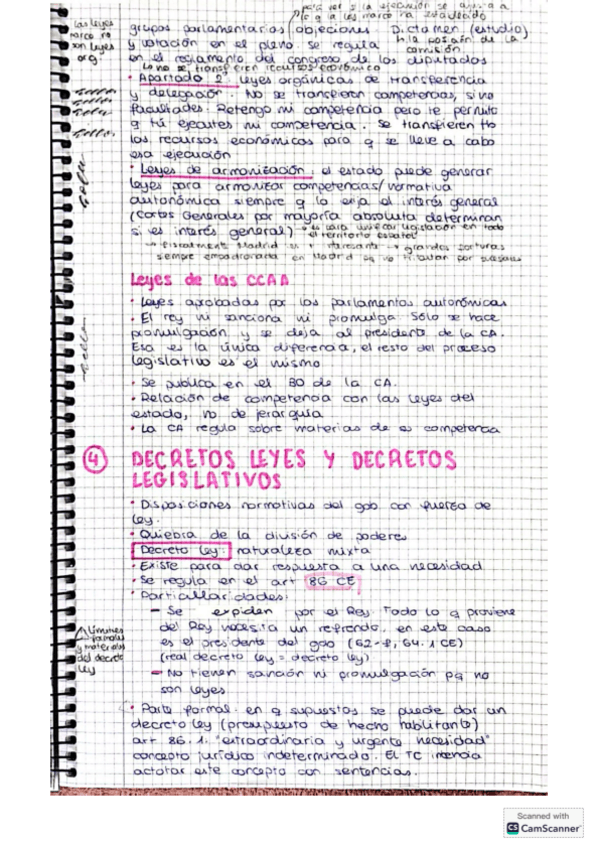 para ver si la ejecución se ajusta a
lo q la ley marco ha establecido
las leyes
marco no
son leyes
org.
grupos parlamentarios / objeciones. Dictamen (estudio)
y votación en el pleno. Se regula
comisión
en el reglamento del congreso de los diputados
no se transfieren recursos económicos
• Apartado 2: leyes orgánicas de transferencia
y delegación. No se transfieren competencias, sino
facultades: Retengo mi competencia pero te permito
q tú ejecutes mi competencia. Se transfieren
los recursos económicos para q se lleve a cabo
esa ejecución
• Leyes de armonización: el estado puede generar
leyes para armonizar competencias/normativa
autonómica siempre q lo exija el interés general
(Cortes Generales por mayoría absoluta determinan
si es interés general) es para unificar legislación en todo
el territorio español
→ fiscalmente Madrid es + interesante → grandes fortunas
siempre empadronada en Madrid pq no tributan por
Leyes de las CCAA
• Leyes aprobadas por los parlamentos autonómicos
• El rey ni sanciona ni promulga. Sólo se hace
promulgación y se deja al presidente de la CA.
Esa es la única diferencia, el resto del proceso
legislativo es el mismo
• Se publica en el BO de la CA.
• Relación de competencia con las leyes del
estado, no de jerarquía
• La CA regula sobre materias de su competencia
④ DECRETOS LEYES Y DECRETOS
LEGISLATIVOS
• Disposiciones normativas del gob con fuerza de
ley.
• Quiebra de la división de poderes
Decreto ley: naturaleza mixta
• Existe para dar respuesta a una necesidad
• Se regula en el art 86 CE
• Particularidades:
— Se expiden por el Rey. Todo lo q proviene
del Rey necesita un refrendo, en este caso
es el presidente del gob (62-f, 64.1 CE)
(real decreto ley = decreto ley)
— No tienen sanción ni promulgación pq no
son leyes
Límites
formales
y materiales
del decreto
ley
• Parte formal: en q supuestos se puede dar un
decreto ley (presupuesto de hecho habilitante)
art 86.1. "extraordinaria y urgente necesidad"
concepto jurídico indeterminado. El TC intenta
acotar este concepto con sentencias.
Scanned with
CS CamScanner